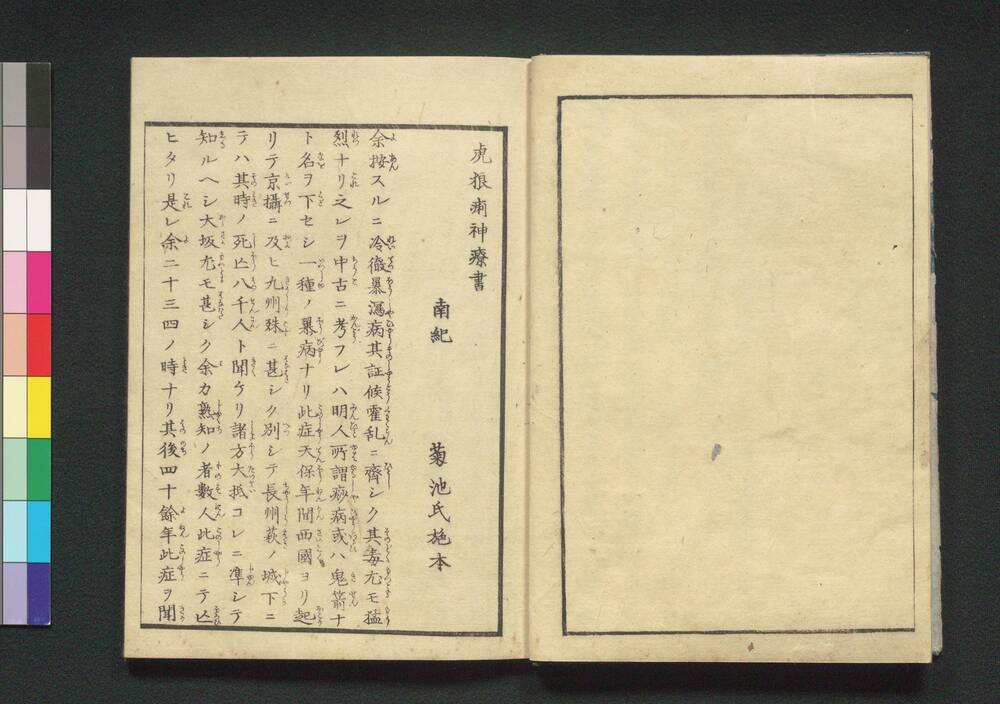 虎狼痢神療書
南紀 菊池氏施本
余按スルニ冷徹暴瀉病其証候霍乱ニ齊シク其毒尤モ猛
烈ナリ之レヲ中古ニ考フレハ明人所謂痧病或ハ鬼箭ナ
ト名ヲ下セシ一種ノ暴病ナリ此症天保年間西國ヨリ起
リテ京攝ニ及ヒ九州殊ニ甚シク別シテ長州萩ノ城下ニ
テハ其時ノ死亡八千人ト聞ケリ諸方大抵コレニ準シテ
知ルヘシ大坂尤モ甚シク余カ熟知ノ者數人此症ニテ亡
ヒタリ是レ余二十三四ノ時ナリ其後四十餘年此症ヲ聞